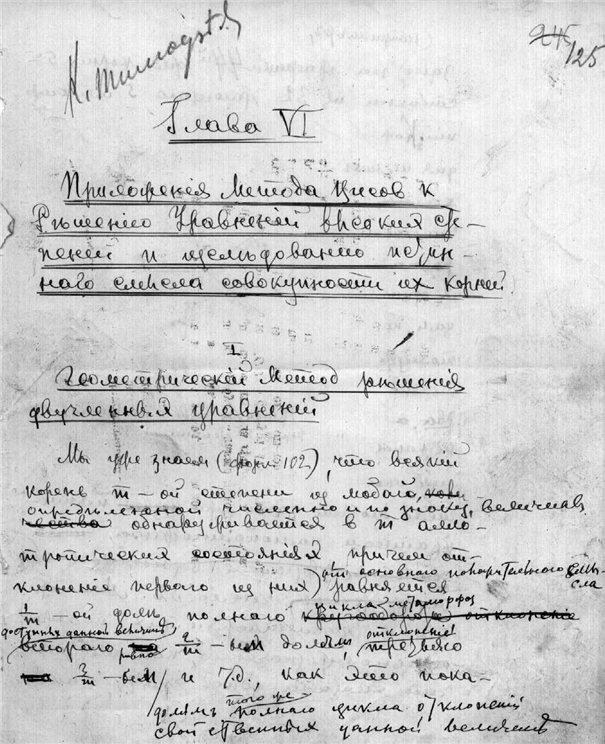 К. Тим
245
125
Глава VI
Приложения метода в к
Решению Уравнений высоких сте-
пеней и изследованию истин-
наго смысла совокупности их корней.
I
Геометрический метод решения
двучленных уравнений
Мы уже знаем (форм. 102), что всякий
корень m-ой степени из любого,
определенной численно и по знаку, величины
обнаруживается в m алло-
тропических состояниях причем от-
клонение первого из них от основного смы-
сла равняется
1/m-ой доли полнаго цикла метаморфоз
кругооборота отклонение
доступных данной величине
втораго 2/m-ым долям, отклонений
равно
2/m-ым и т.д., как это пока-
долям того же
полнаго цикла отклонений
свойственных данной величине